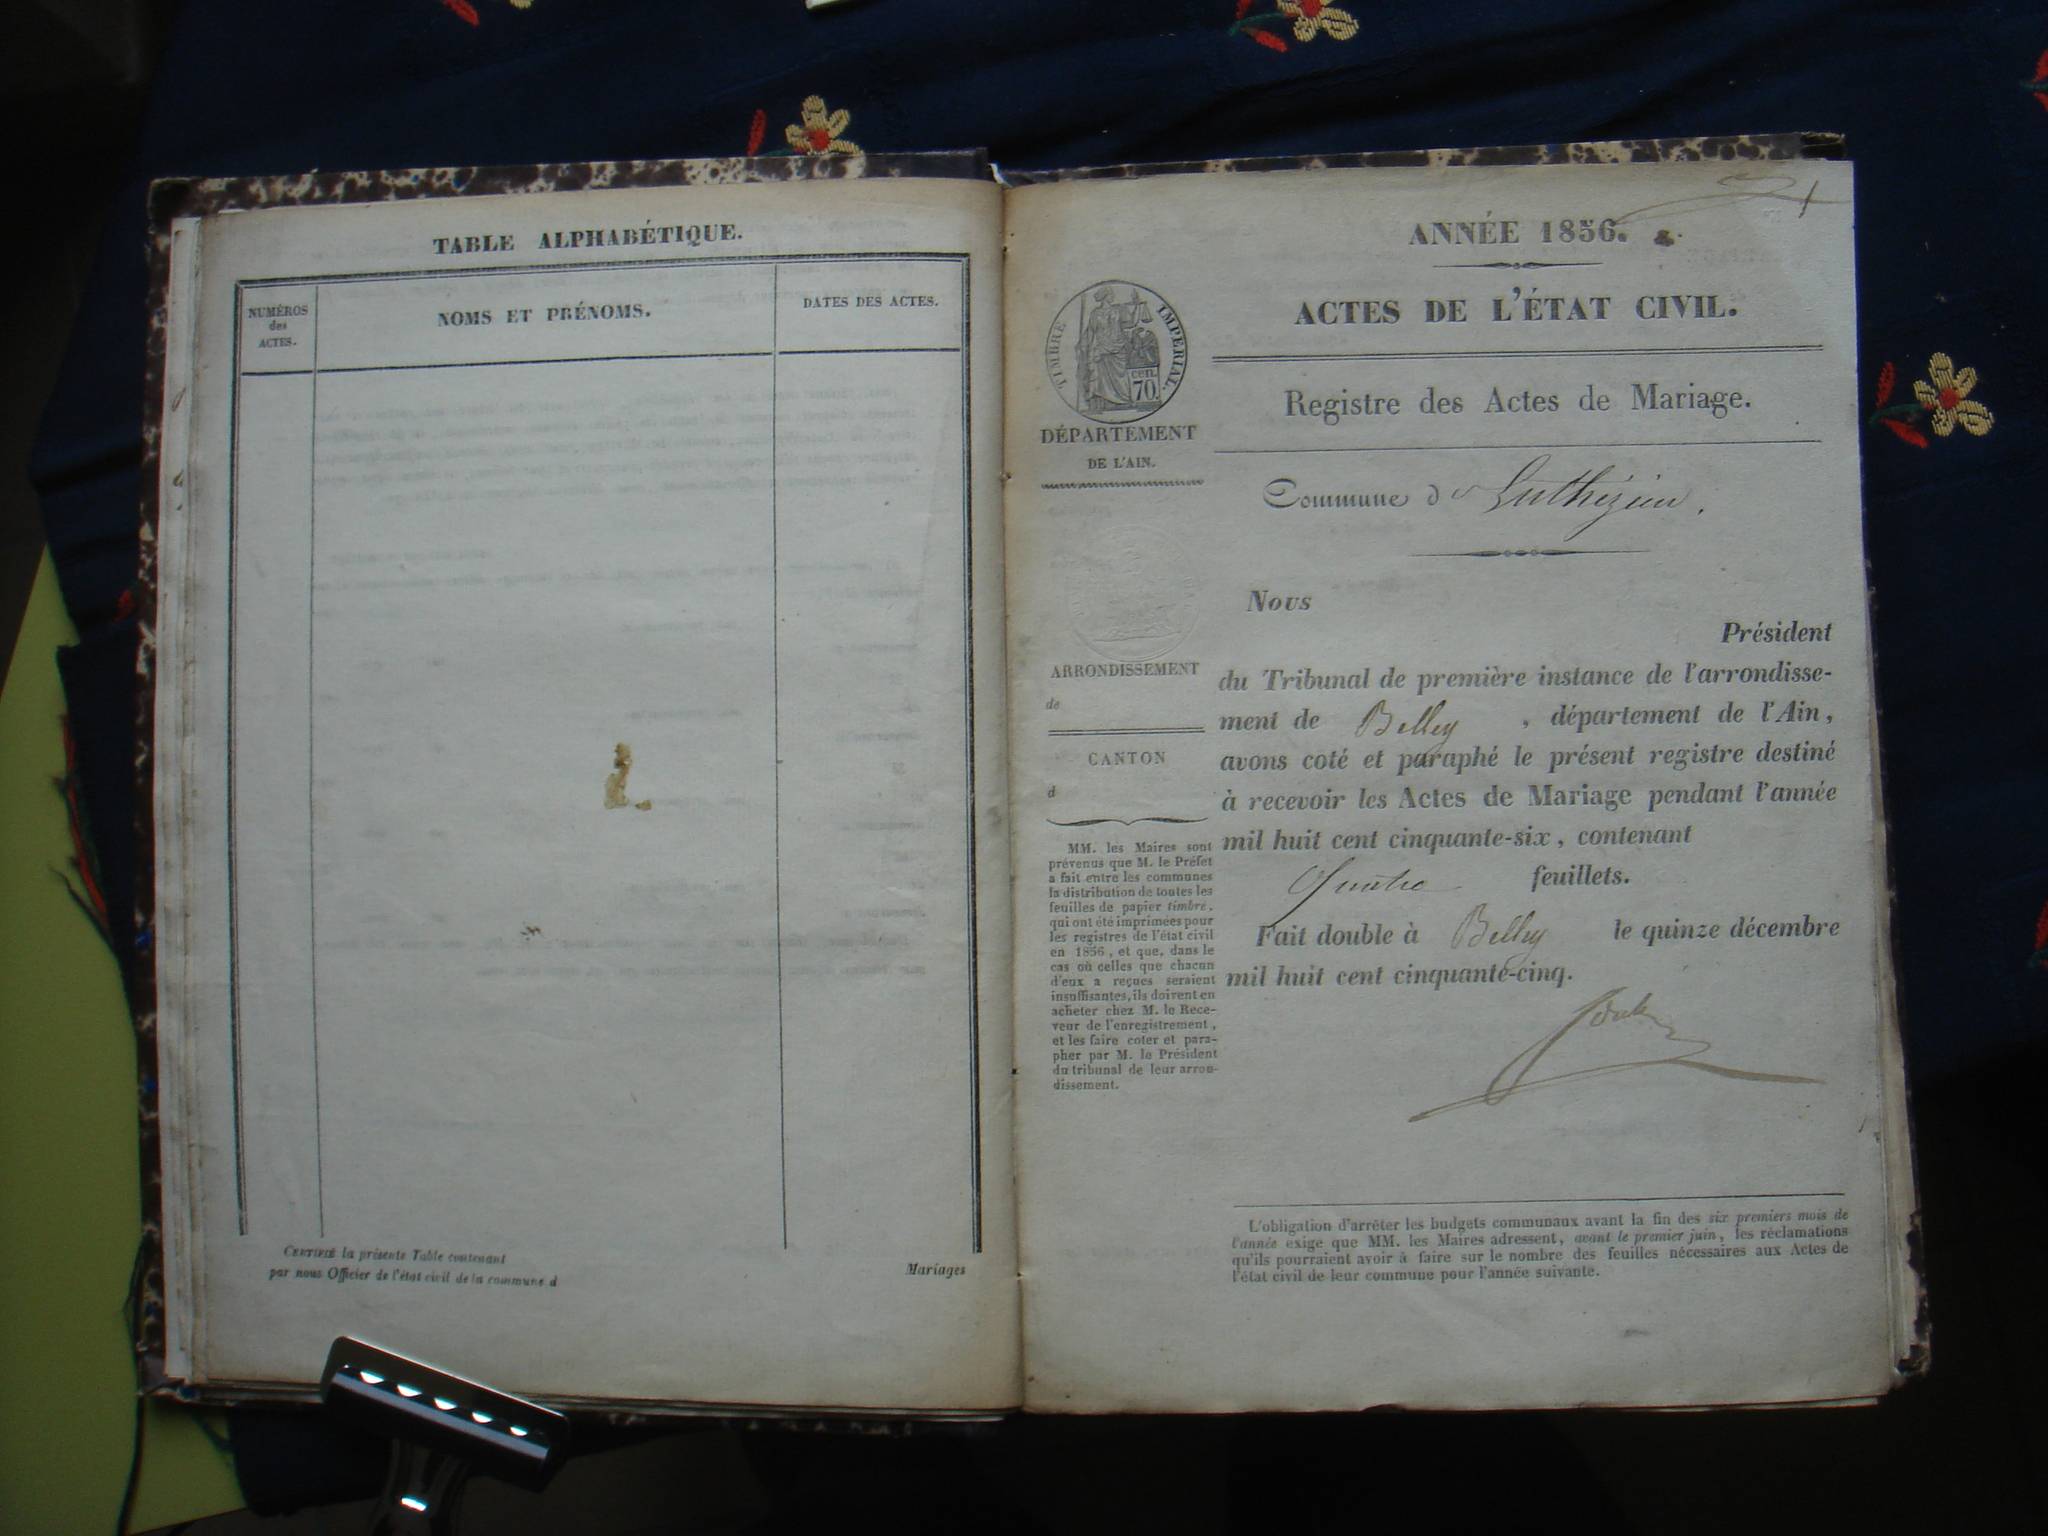 TABLE ALPHABÉTIQUE.
NUMÉROS
des
ACTES.
NOMS ET PRÉNOMS.
DATES DES ACTES.
CERTIFIÉ la présente Table contenant
par nous Officier de l'état civil de la commune d
Mariages
1
ANNÉE 1856.
TIMBRE IMPERIAL.
cen.
70.
DÉPARTEMENT
DE L'AIN.
ARRONDISSEMENT
de
CANTON
d
MM. les Maires sont
prévenus que M. le Préfet
a fait entre les communes
la distribution de toutes les
feuilles de papier timbré,
qui ont été imprimées pour
les registres de l'état civil
en 1856, et que, dans le
cas où celles que chacun
d'eux a reçues seraient
insuffisantes, ils doivent en
acheter chez M. le Rece-
veur de l'enregistrement,
et les faire coter et para-
pher par M. le Président
du tribunal de leur arron-
dissement.
ACTES DE L'ÉTAT CIVIL.
Registre des Actes de Mariage.
Commune de Luthézieu.
Nous
Président
du Tribunal de première instance de l'arrondisse-
ment de Belley, département de l'Ain,
avons coté et paraphé le présent registre destiné
à recevoir les Actes de Mariage pendant l'année
mil huit cent cinquante-six, contenant
Quatre feuillets.
Fait double à Belley le quinze décembre
mil huit cent cinquante-cinq.
L'obligation d'arrêter les budgets communaux avant la fin des six premiers mois de
l'année exige que MM. les Maires adressent, avant le premier juin, les réclamations
qu'ils pourraient avoir à faire sur le nombre des feuilles nécessaires aux Actes de
l'état civil de leur commune pour l'année suivante.